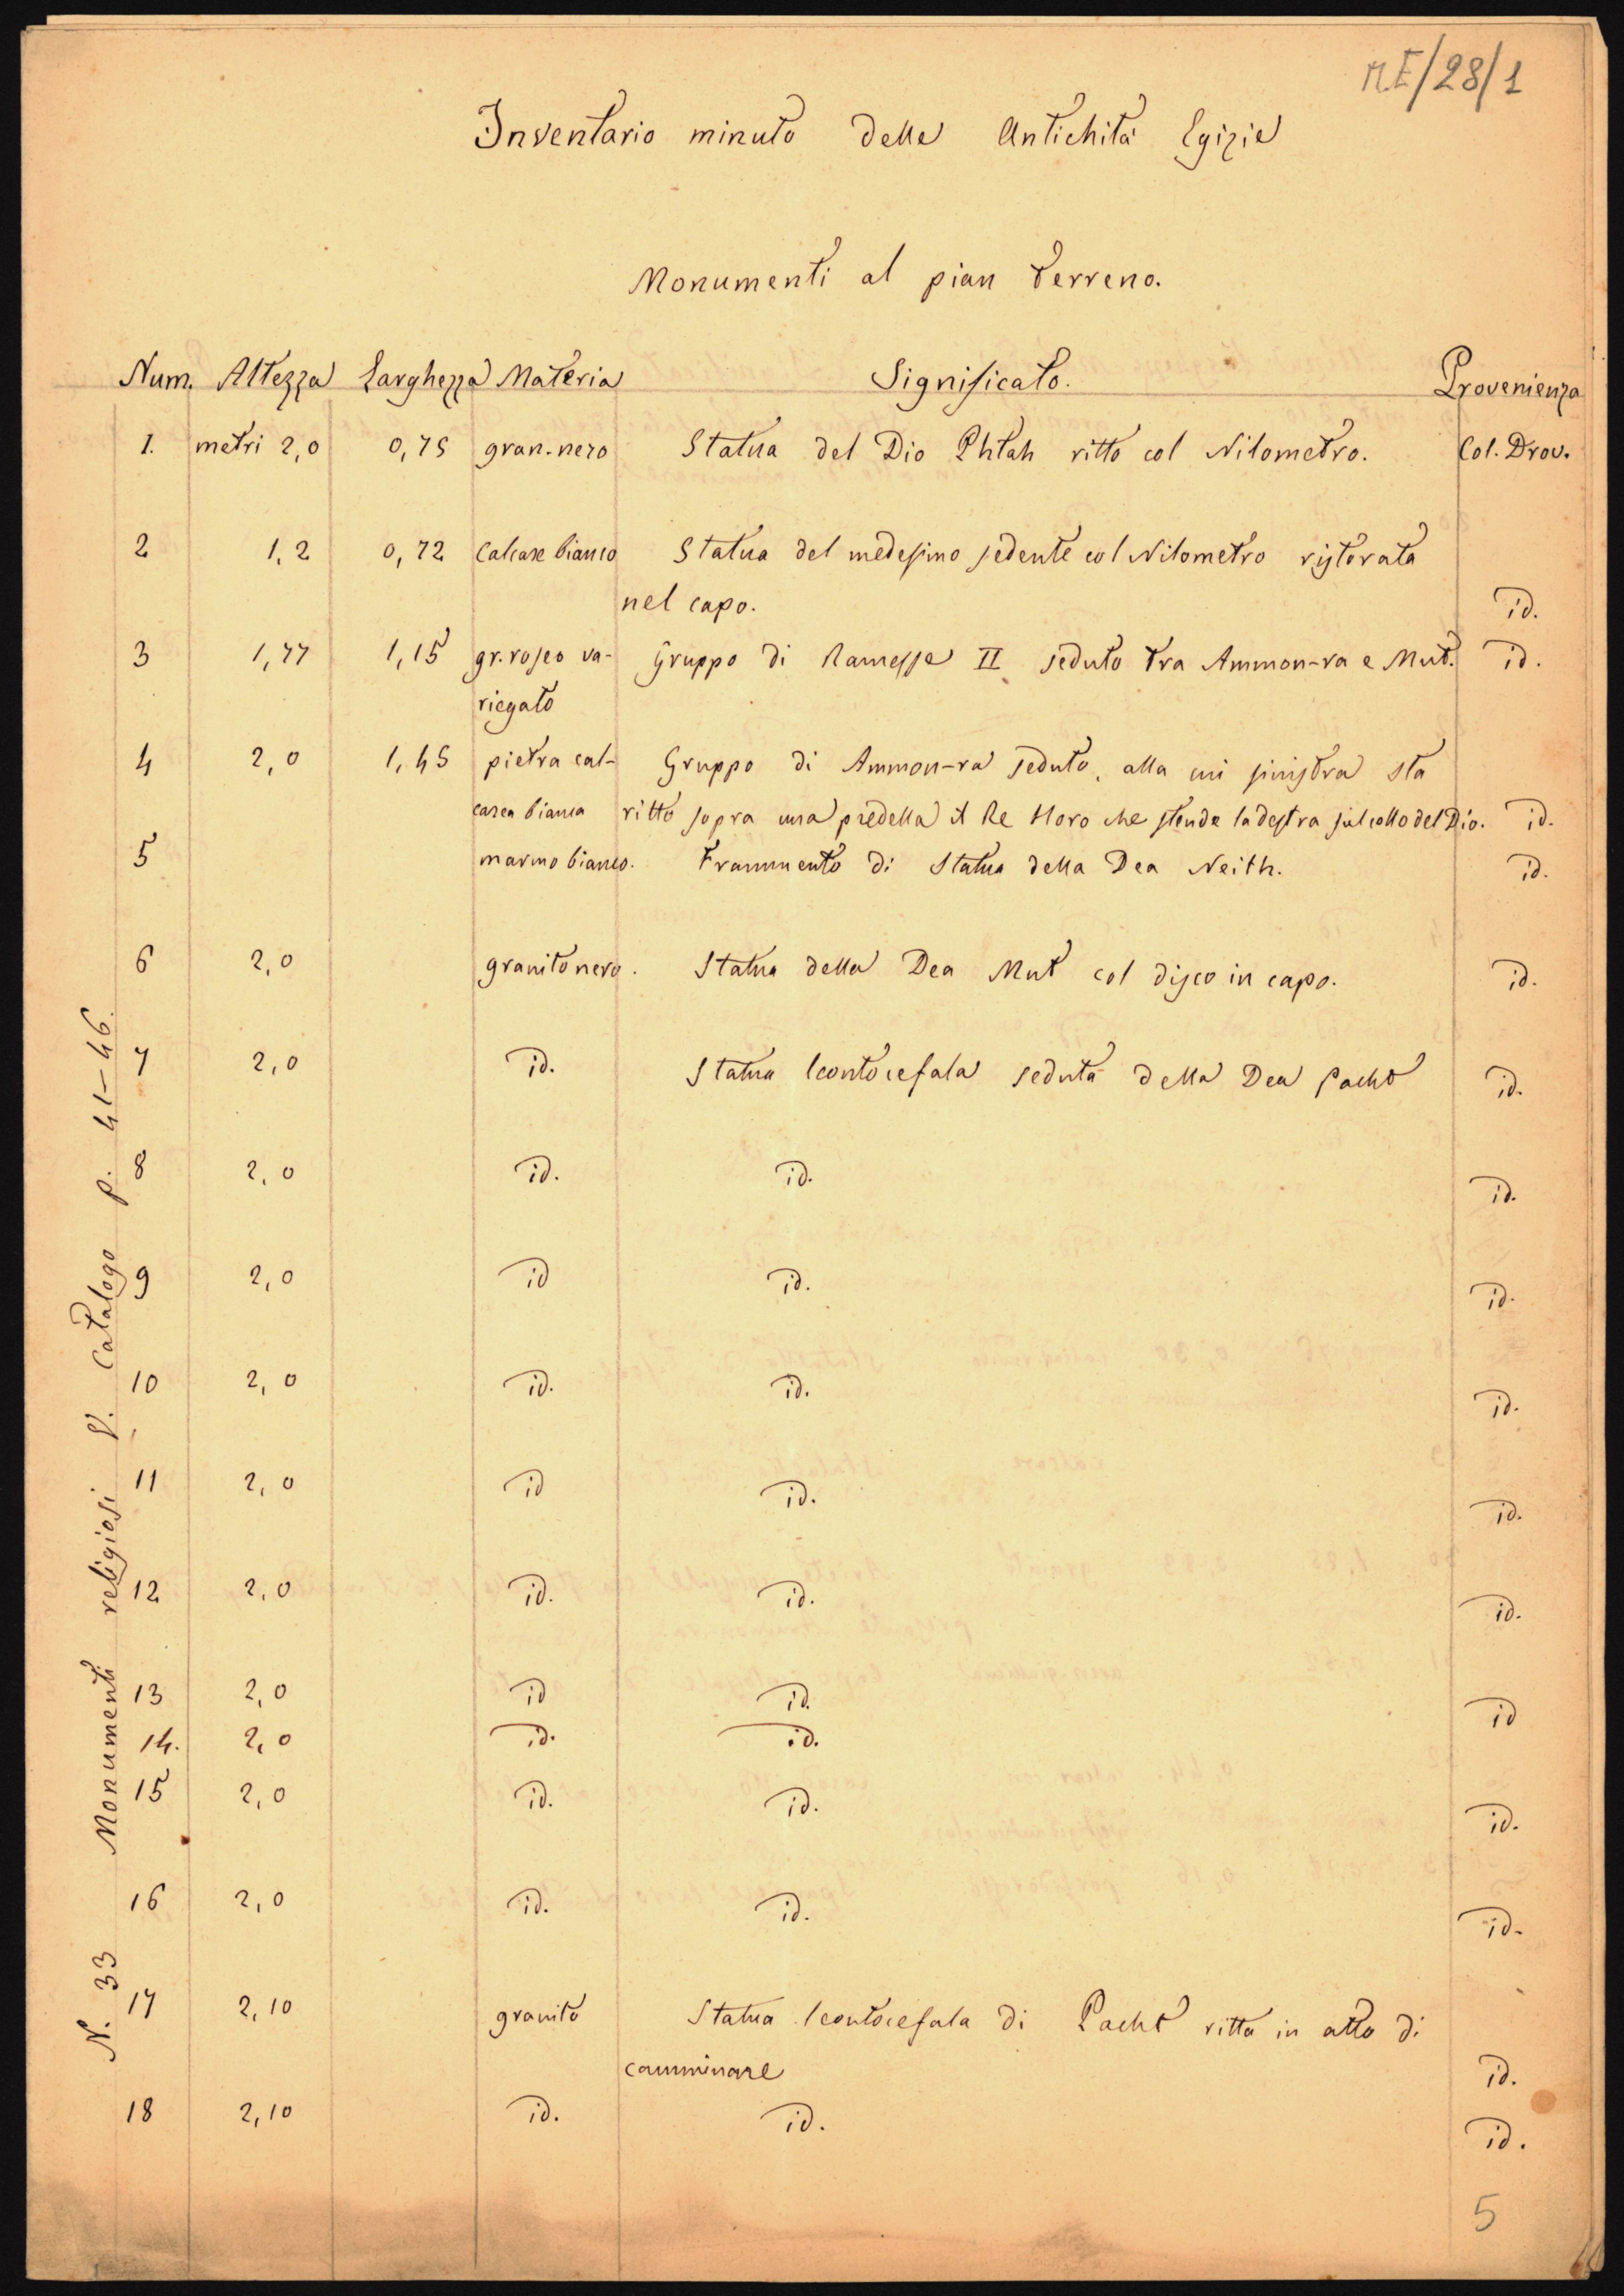 M.E/28/1
Inventario minuto delle Antichità Egizie
Monumenti al pian terreno.
Num. Altezza Larghezza Materia Significato. Provenienza
1. metri 2,0 0,75 gran. nero Statua del Dio Phtah ritto col Nilometro. Col. Drov.
2 1,2 0,72 Calcare bianco Statua del medesimo sedente col Nilometro ristorata
nel capo. id.
3 1,77 1,15 gr. roseo va- Gruppo di Ramesse II seduto tra Ammon-ra e Mut. id.
riegato
4 2,0 1,45 pietra cal- Gruppo di Ammon-ra seduto, alla cui sinistra sta
carea bianca ritto sopra una predella il Re Horo che stende la destra sul collo del Dio. id.
5 marmo bianco. Frammento di Statua della Dea Neith. id.
6 2,0 granito nero. Statua della Dea Mut col disco in capo. id.
7 2,0 id. Statua leontocefala seduta della Dea Pacht id.
8 2,0 id. id. id.
9 2,0 id id. id.
10 2,0 id. id. id.
11 2,0 id id. id.
12 2,0 id. id. id.
13 2,0 id id. id
14. 2,0 id. id.
15 2,0 id. id. id.
16 2,0 id. id. id.
17 2,10 granito Statua leontocefala di Pacht ritta in atto di
camminare id.
18 2,10 id. id. id.
N. 33 Monumenti religiosi V. Catalogo p. 41-46.
5